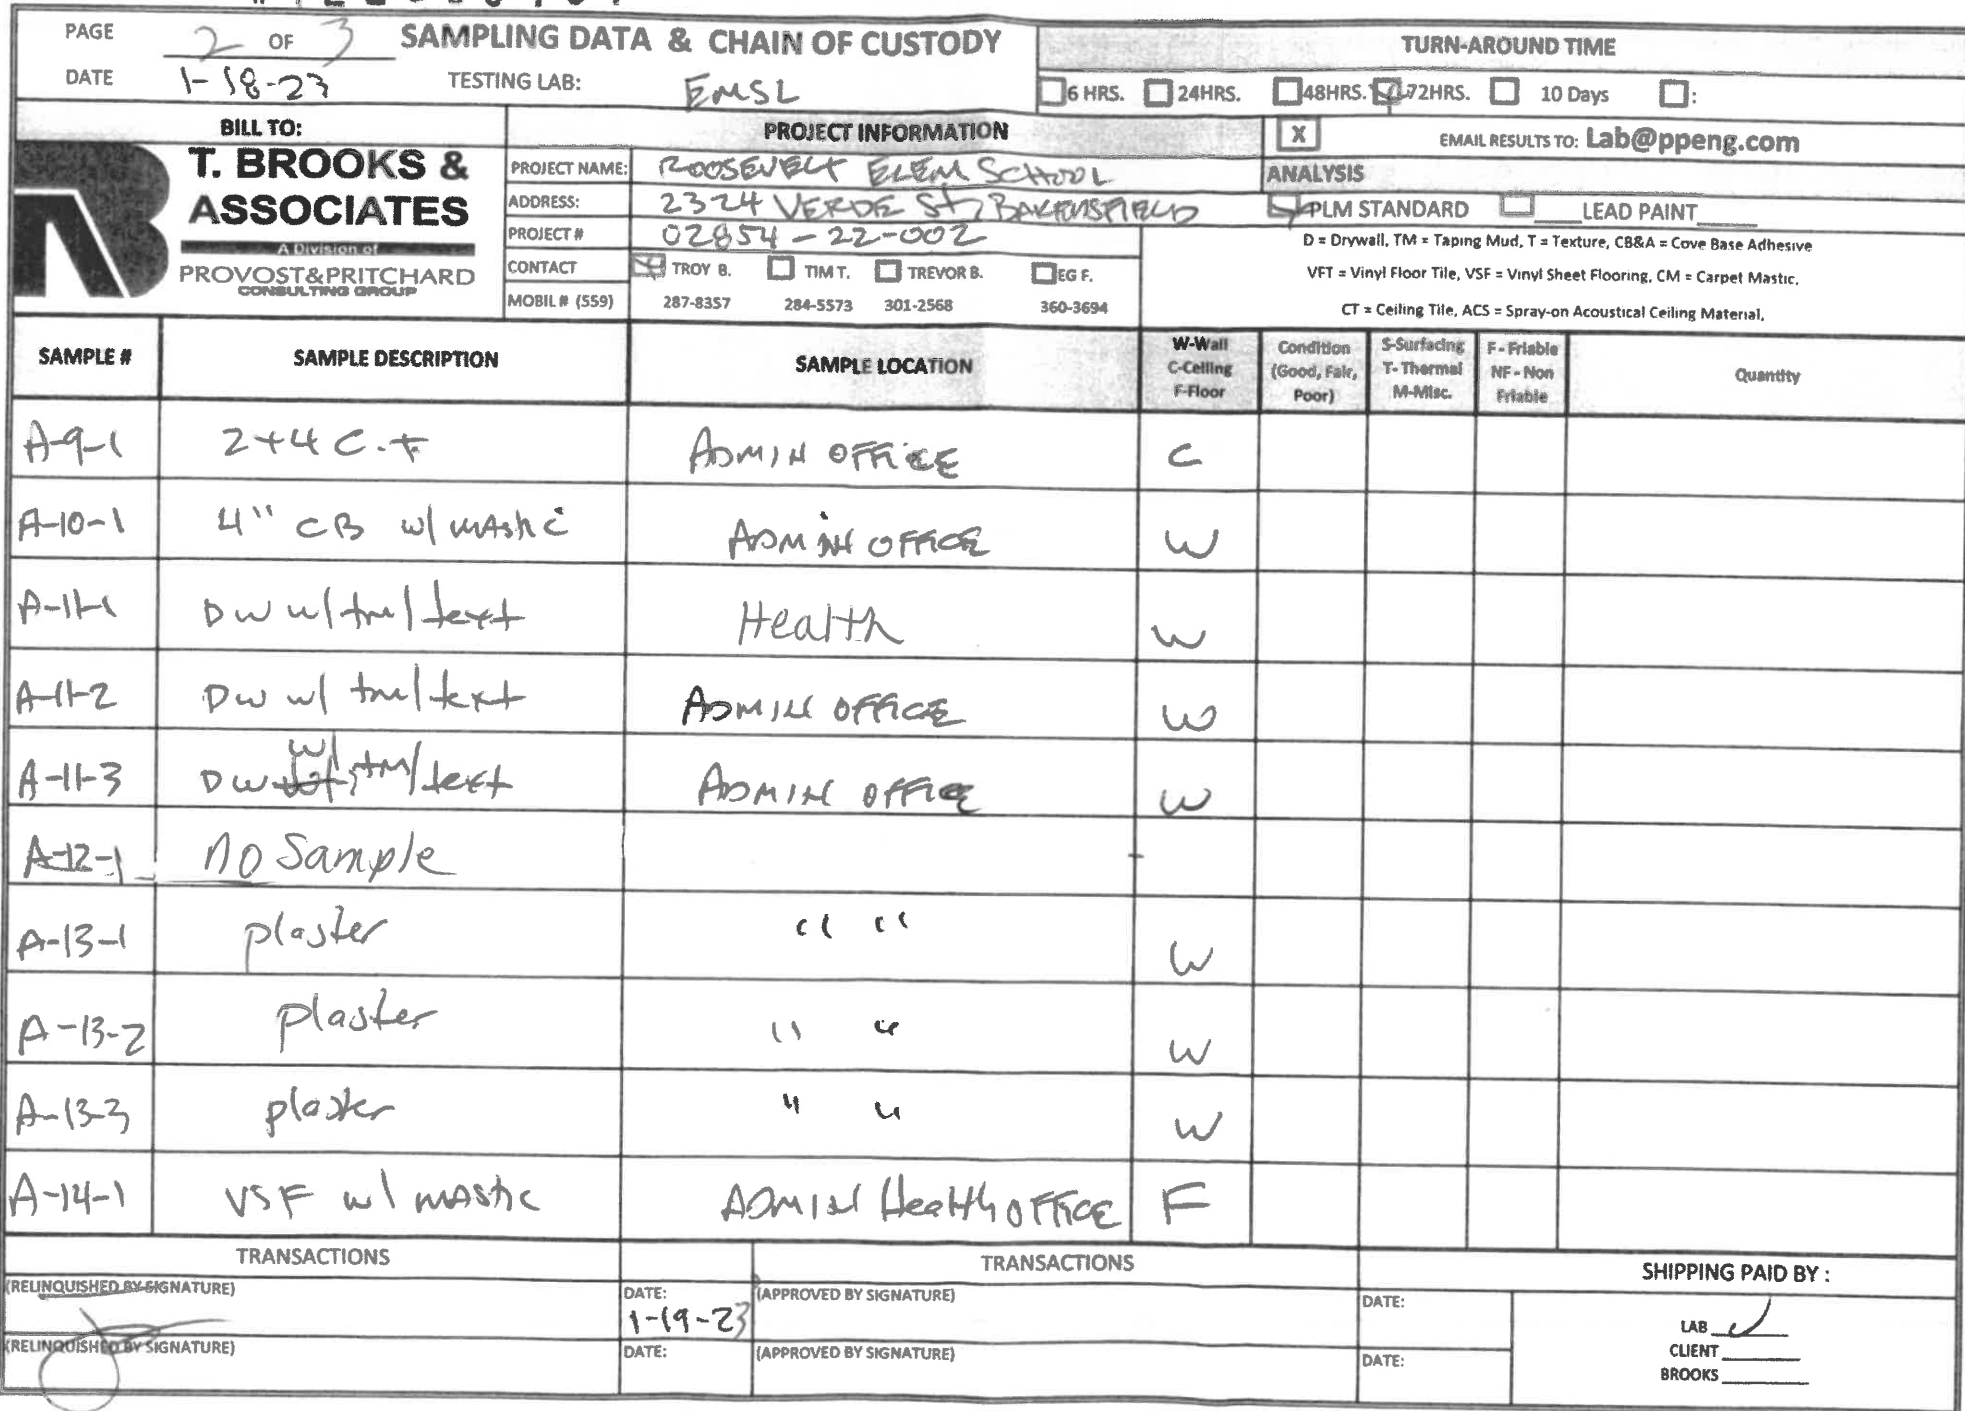 PAGE 2 OF 3 SAMPLING DATA & CHAIN OF CUSTODY
TURN-AROUND TIME
DATE 1-18-23 TESTING LAB: EMSL
6 HRS. 24HRS. 48HRS. 72HRS. 10 Days :
BILL TO:
PROJECT INFORMATION
X EMAIL RESULTS TO: Lab@ppeng.com
T. BROOKS &
ASSOCIATES
A Division of
PROVOST&PRITCHARD
CONSULTING GROUP
PROJECT NAME: ROOSEVELT ELEM SCHOOL
ADDRESS: 2324 VERDE St, BAKERSFIELD
PROJECT # 02854-22-002
CONTACT TROY B. TIM T. TREVOR B. EG F.
MOBIL # (559) 287-8357 284-5573 301-2568 360-3694
ANALYSIS
PLM STANDARD LEAD PAINT
D = Drywall, TM = Taping Mud, T = Texture, CB&A = Cove Base Adhesive
VFT = Vinyl Floor Tile, VSF = Vinyl Sheet Flooring, CM = Carpet Mastic,
CT = Ceiling Tile, ACS = Spray-on Acoustical Ceiling Material,
SAMPLE # SAMPLE DESCRIPTION SAMPLE LOCATION
W-Wall
C-Ceiling
F-Floor
Condition
(Good, Fair,
Poor)
S-Surfacing
T-Thermal
M-Misc.
F-Friable
NF-Non
Friable
Quantity
A-9-1 2+4 C.T ADMIN OFFICE C
A-10-1 4" CB w/ mastic ADMIN OFFICE W
A-11-1 DW w/tm/text Health W
A-11-2 DW w/ tm/text ADMIN OFFICE W
A-11-3 DW w/ tm/text ADMIN OFFICE W
A-12-1 no Sample
A-13-1 plaster " " W
A-13-2 plaster " " W
A-13-3 plaster " " W
A-14-1 VSF w/ mastic ADMIN Health OFFICE F
TRANSACTIONS
TRANSACTIONS
SHIPPING PAID BY :
(RELINQUISHED BY SIGNATURE)
DATE:
1-19-23
(APPROVED BY SIGNATURE)
DATE:
(RELINQUISHED BY SIGNATURE)
DATE:
(APPROVED BY SIGNATURE)
DATE:
LAB
CLIENT
BROOKS